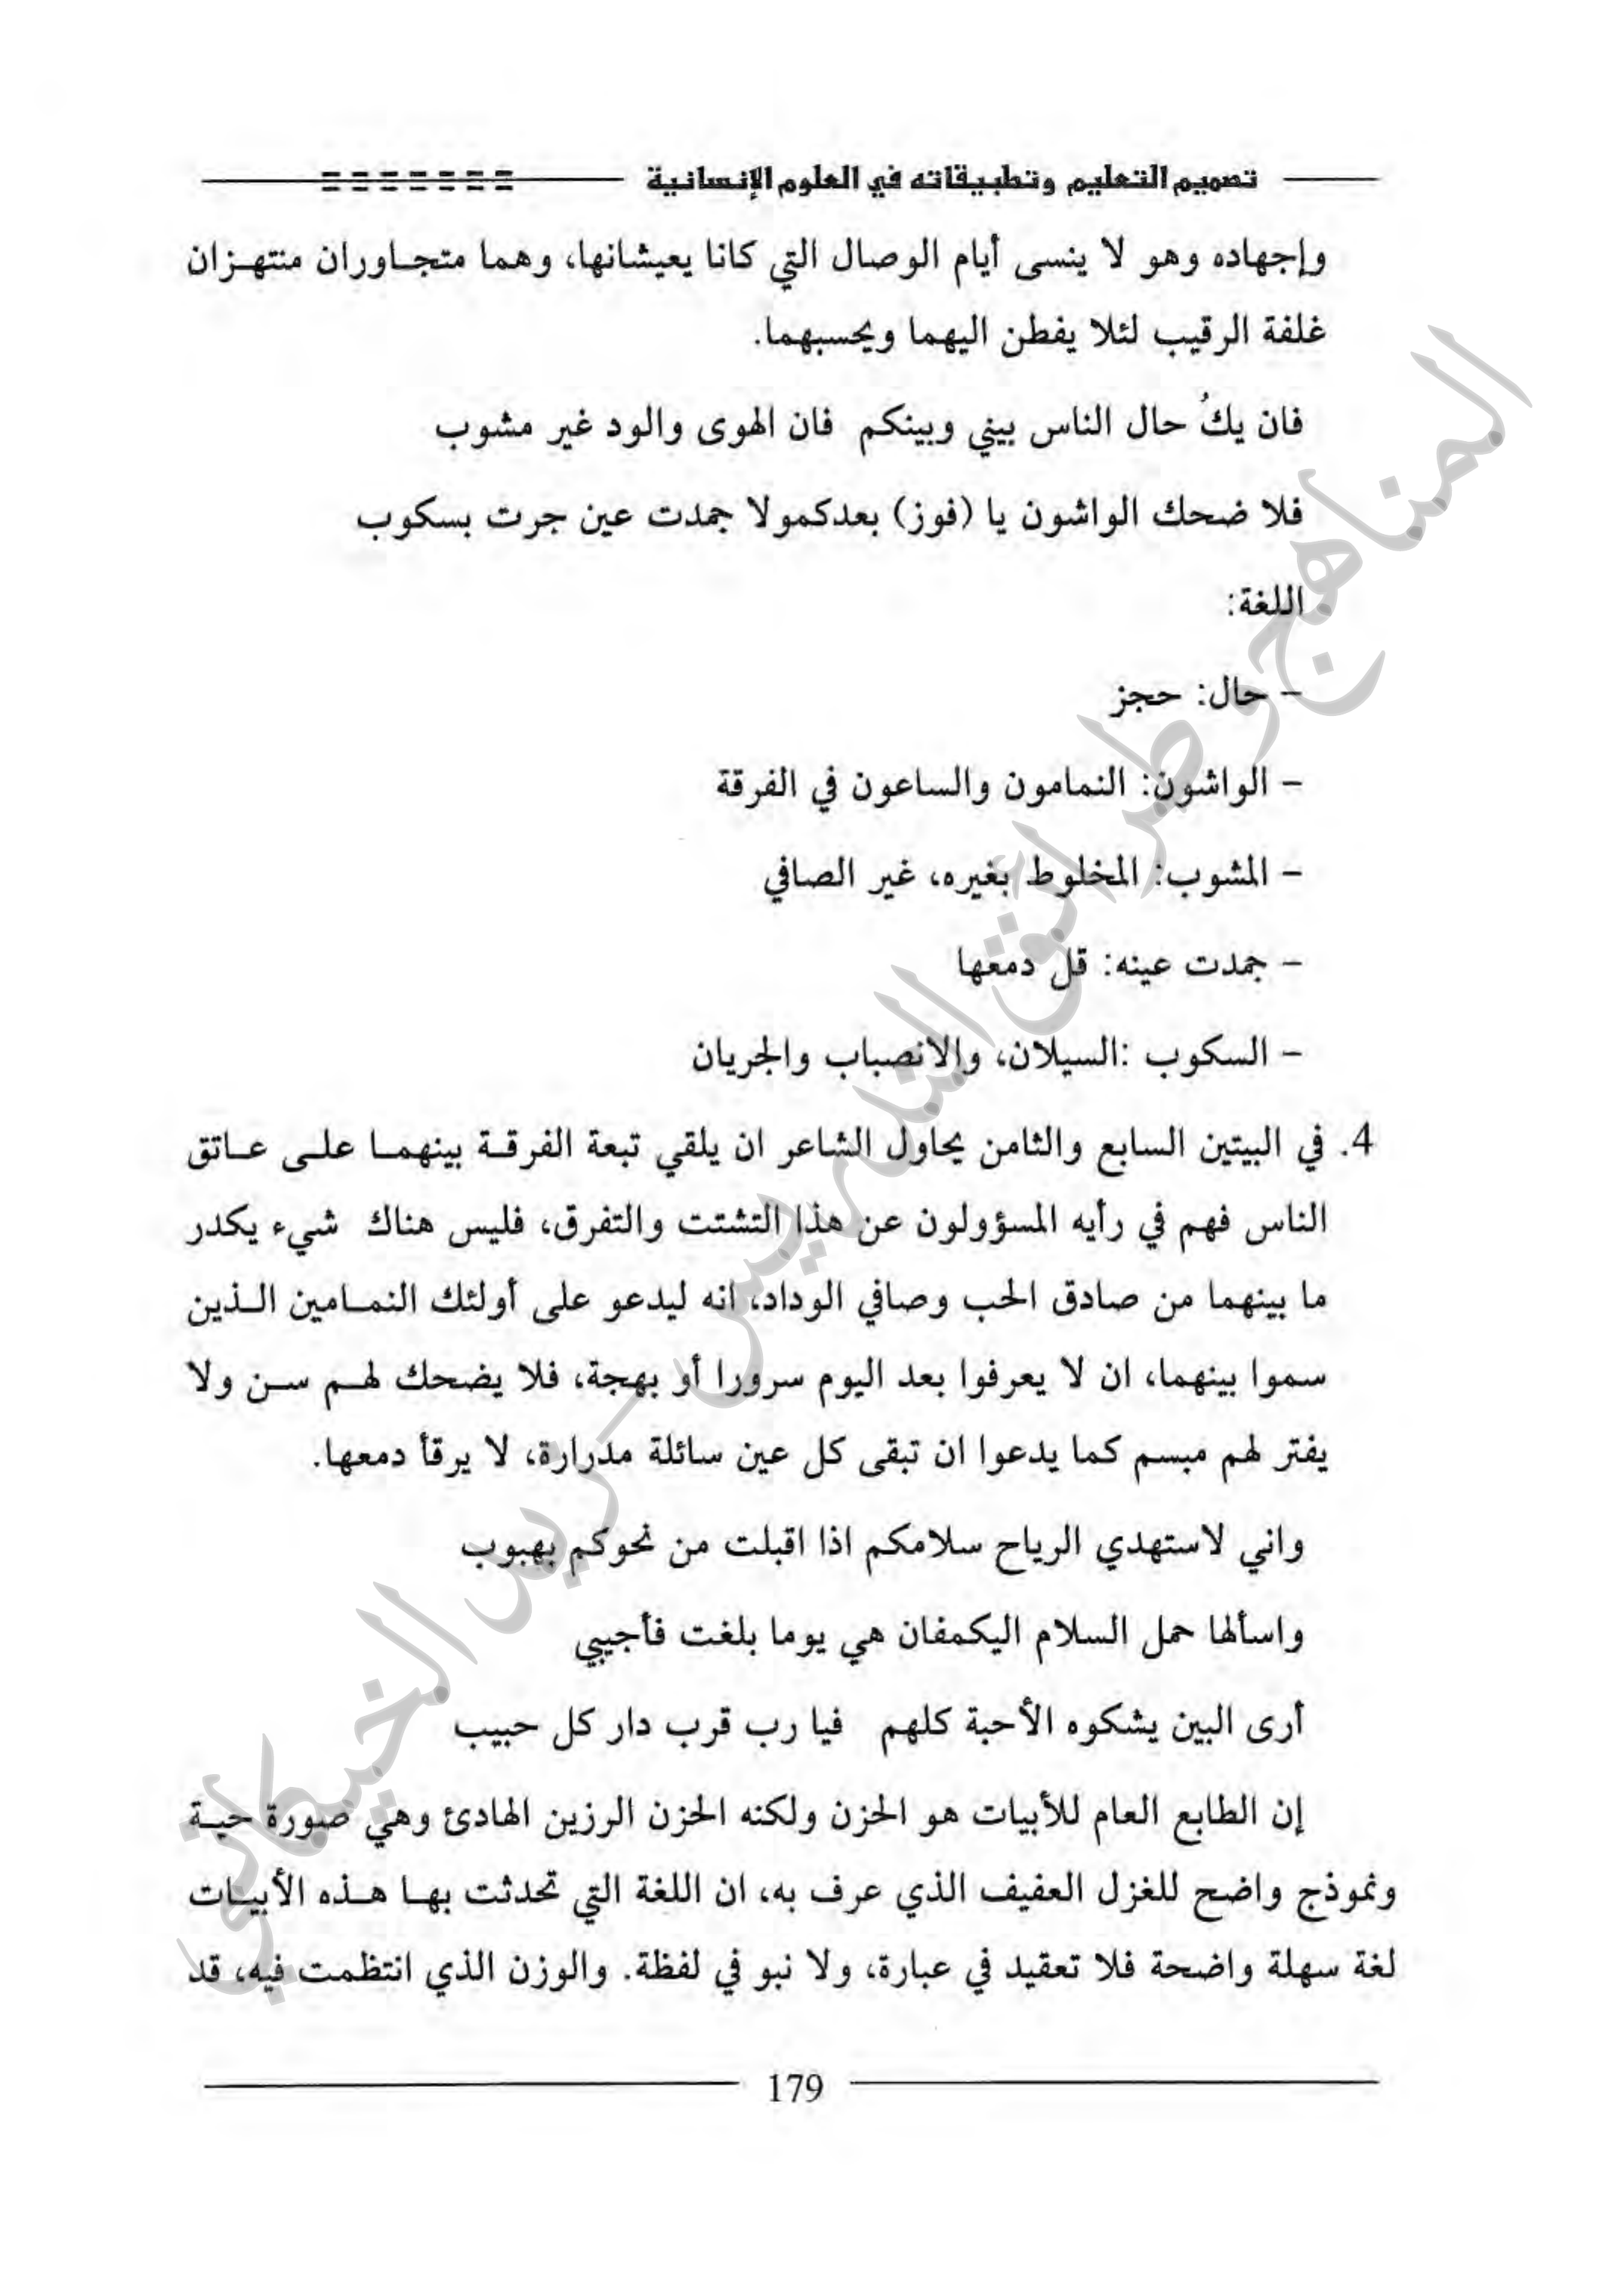 تصميم التعليم وتطبيقاته في العلوم الإنسانية
وإجهاده وهو لا ينسى أيام الوصال التي كانا يعيشانها، وهما متجاوران منتهزان
غلفة الرقيب لئلا يفطن اليهما ويحسبهما.
فان يكُ حال الناس بيني وبينكم فان الهوى والود غير مشوب
فلا ضحك الواشون يا (فوز) بعدكمولا جمدت عين جرت بسكوب
اللغة:
– حال: حجز
– الواشون: النمامون والساعون في الفرقة
– المشوب: المخلوط بغيره، غير الصافي
– جمدت عينه: قل دمعها
– السكوب :السيلان، والانصباب والجريان
4. في البيتين السابع والثامن يحاول الشاعر ان يلقي تبعة الفرقة بينهما على عاتق
الناس فهم في رأيه المسؤولون عن هذا التشتت والتفرق، فليس هناك شيء يكدر
ما بينهما من صادق الحب وصافي الوداد، انه ليدعو على أولئك النمامين الذين
سموا بينهما، ان لا يعرفوا بعد اليوم سرورا أو بهجة، فلا يضحك لهم سن ولا
يفتر لهم مبسم كما يدعوا ان تبقى كل عين سائلة مدرارة، لا يرقأ دمعها.
واني لاستهدي الرياح سلامكم اذا اقبلت من نحوكم بهبوب
واسألها حمل السلام اليكمفان هي يوما بلغت فأجيبي
أرى البين يشكوه الأحبة كلهم فيا رب قرب دار كل حبيب
إن الطابع العام للأبيات هو الحزن ولكنه الحزن الرزين الهادئ وهي صورة حية
ونموذج واضح للغزل العفيف الذي عرف به، ان اللغة التي تحدثت بها هذه الأبيات
لغة سهلة واضحة فلا تعقيد في عبارة، ولا نبو في لفظة. والوزن الذي انتظمت فيه، قد
179
المناهج وطرائق التدريس – زيد الخيكاني